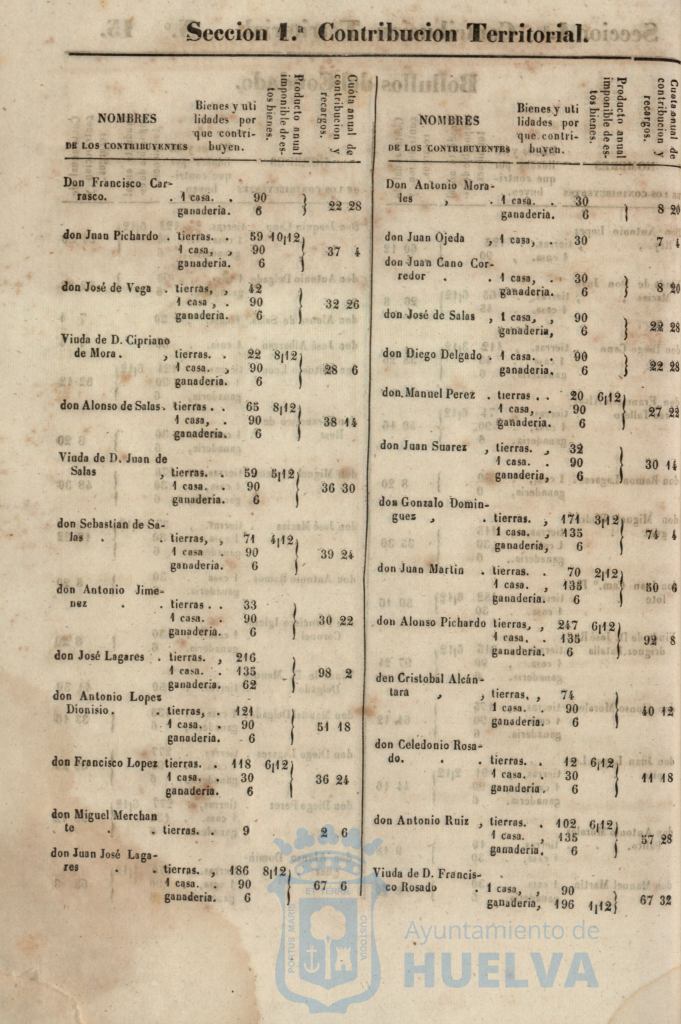 Seccion 1.ª Contribucion Territorial.
NOMBRES
DE LOS CONTRIBUYENTES
Bienes y uti
lidades por
que contri-
buyen.
Producto anual
imponible de es-
tos bienes.
Cuota anual de
contribucion y
recargos.
Don Francisco Car-
rasco. . 1 casa. . 90
ganaderia. 6 22 28
don Juan Pichardo . tierras. . 59 10|12
1 casa, , 90 37 4
ganaderia. 6
don José de Vega . tierras, , 42
1 casa , . 90 32 26
ganaderia. 6
Viuda de D. Cipriano
de Mora . , tierras. . 22 8|12
1 casa. , 90 28 6
ganaderia. 6
don Alonso de Salas. tierras . . 65 8|12
1 casa, . 90 38 14
ganaderia. 6
Viuda de D. Juan de
Salas , tierras. . 59 5|12
1 casa. . 90 36 30
ganaderia. 6
don Sebastian de Sa-
las . . tierras, , 71 4|12
1 casa . 90 39 24
ganaderia. 6
don Antonio Jime-
nez . . tierras . . 33
1 casa. . 90 30 22
ganaderia. 6
don José Lagares . tierras. , 216
1 casa. . 135 98 2
ganaderia. 62
don Antonio Lopez
Dionisio. . tierras, . 121
1 casa. . 90 51 18
ganaderia. 6
don Francisco Lopez tierras. . 118 6|12
1 casa. . 30 36 24
ganaderia. 6
don Miguel Merchan
te . . tierras. . 9 2 6
don Juan José Laga-
res . . tierras. , 186 8|12
1 casa. . 90 67 6
ganaderia. 6
NOMBRES
DE LOS CONTRIBUYENTES
Bienes y uti
lidades por
que contri-
buyen.
Producto anual
imponible de es-
tos bienes.
Cuota anual de
contribucion y
recargos.
Don Antonio Mora-
les , . 1 casa. . 30
ganaderia. 6 8 20
don Juan Ojeda , 1 casa, . 30 7 4
don Juan Cano Cor-
redor . . 1 casa, . 30
ganaderia. 6 8 20
don José de Salas , 1 casa, , 90
ganaderia, 6 22 28
don Diego Delgado . 1 casa. . 90
ganaderia. 6 22 28
don Manuel Perez . tierras . . 20 6|12
1 casa, . 90 27 22
ganaderia. 6
don Juan Suarez , tierras. , 32
1 casa. . 90 30 14
ganaderia, 6
don Gonzalo Domin-
guez , . tierras. , 171 3|12
1 casa. , 135 74 4
ganaderia, 6
don Juan Martin . tierras. . 70 2|12
1 casa. , 135 50 6
ganaderia. 6
don Alonso Pichardo tierras, , 247 6|12
1 casa, . 135 92 8
ganaderia. 6
den Cristobal Alcán-
tara , , tierras. , 74
1 casa. . 90 40 12
ganaderia. 6
don Celedonio Rosa-
do. . . tierras. . 12 6|12
1 casa. . 30 11 18
ganaderia. 6
don Antonio Ruiz , tierras. . 102 6|12
1 casa. , 135 57 28
ganaderia. 6
Viuda de D. Francis-
co Rosado . 1 casa, , 90
ganaderia, 196 1|12 67 32
PORTUS MARIS
CUSTODIA
Ayuntamiento de
HUELVA